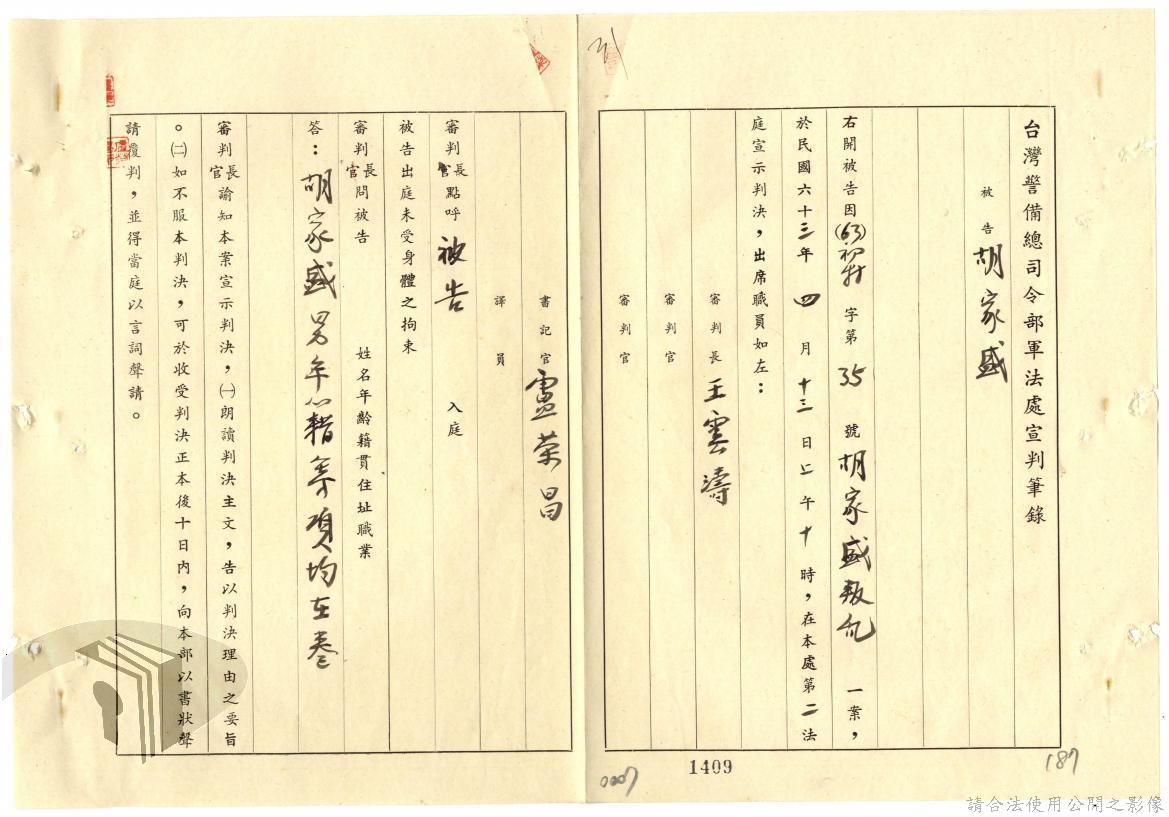 台灣警備總司令部軍法處宣判筆錄
被告 胡家盛
右開被告因(63)初特字第35號胡家盛叛亂一案，
於民國六十三年四月十三日上午十時，在本處第二法
庭宣示判決，出席職員如左：
審判長 王雲濤
審判官
審判官
書記官 盧榮昌
譯員
審判長官點呼 被告 入庭
被告出庭未受身體之拘束
審判長官問被告 姓名年齡籍貫住址職業
答：胡家盛男年籍等項均在卷
審判長官諭知本案宣示判決，㈠朗讀判決主文，告以判決理由之要旨
。㈡如不服本判決，可於收受判決正本後十日內，向本部以書狀聲
請覆判，並得當庭以言詞聲請。
1409
187
0007
請合法使用公開之影像